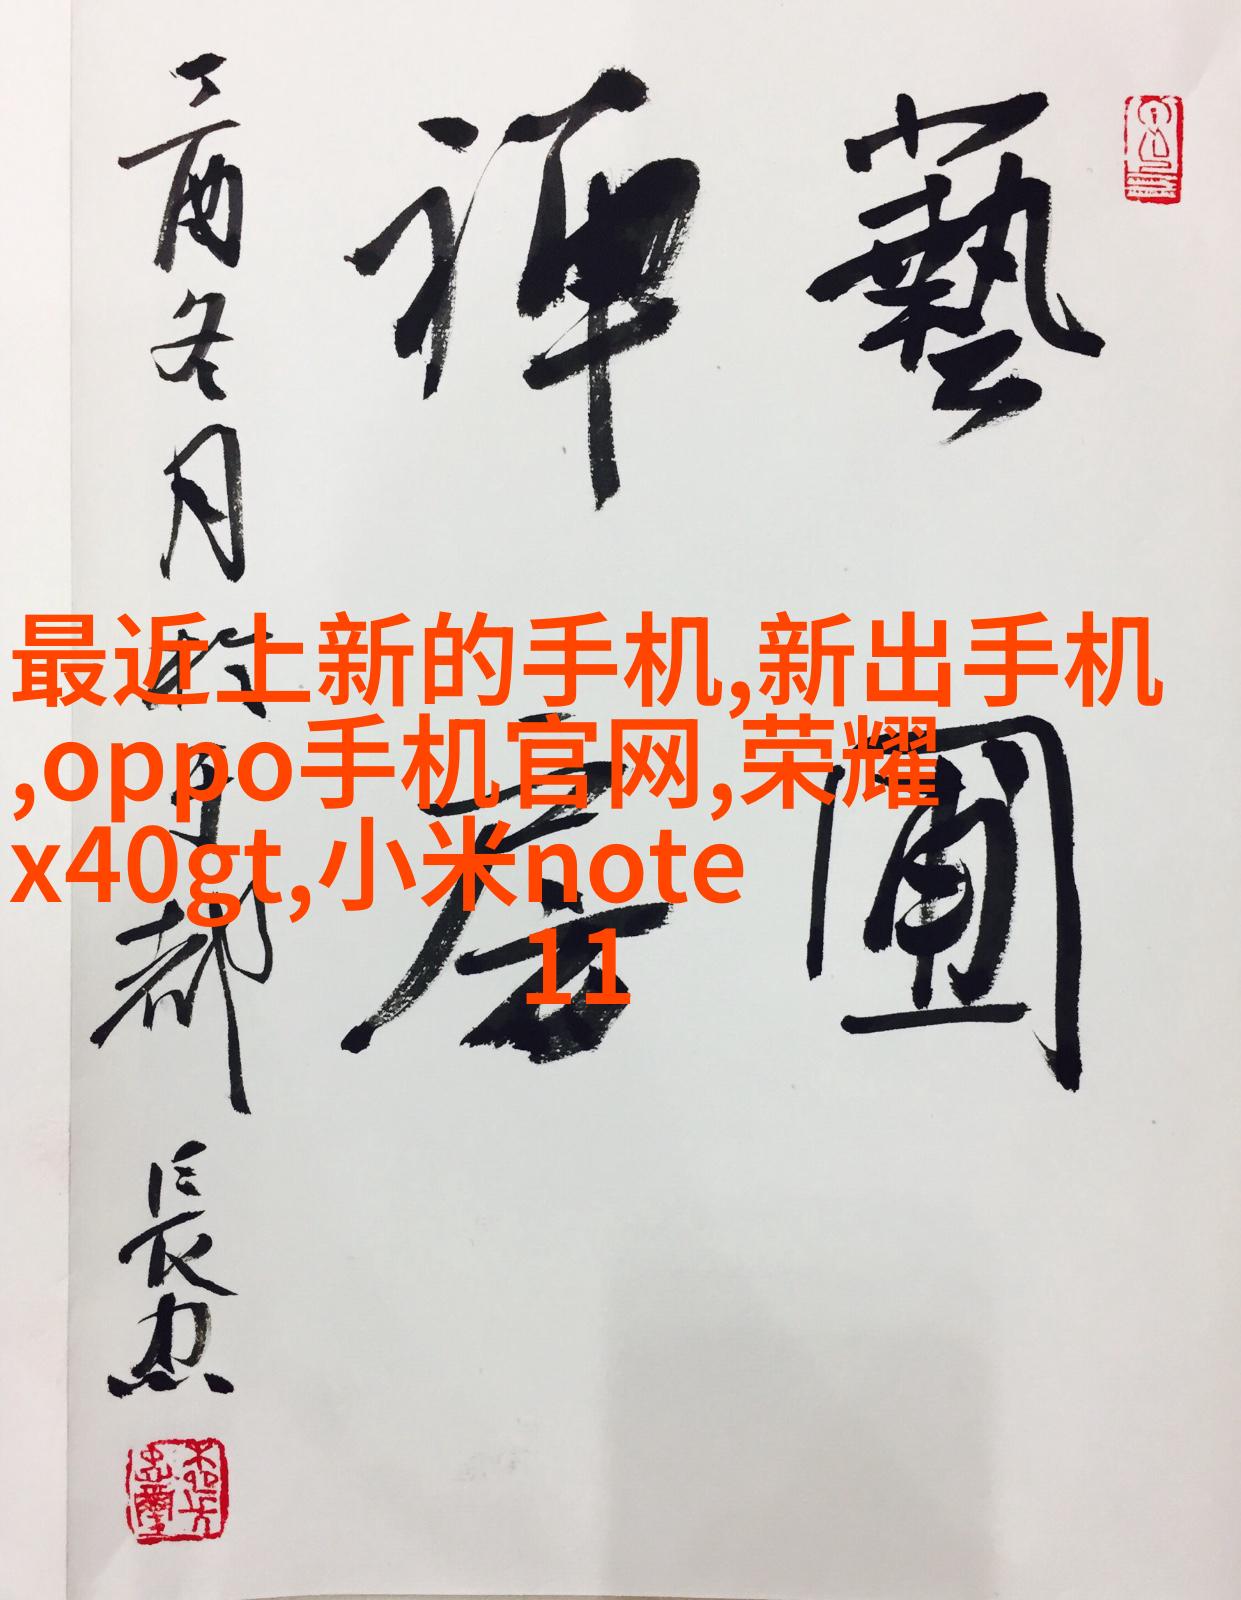 藝圃
禪房
丁酉冬月於京都
長忠
最近上新的手机,新出手机
,oppo手机官网,荣耀
x40gt,小米note
11